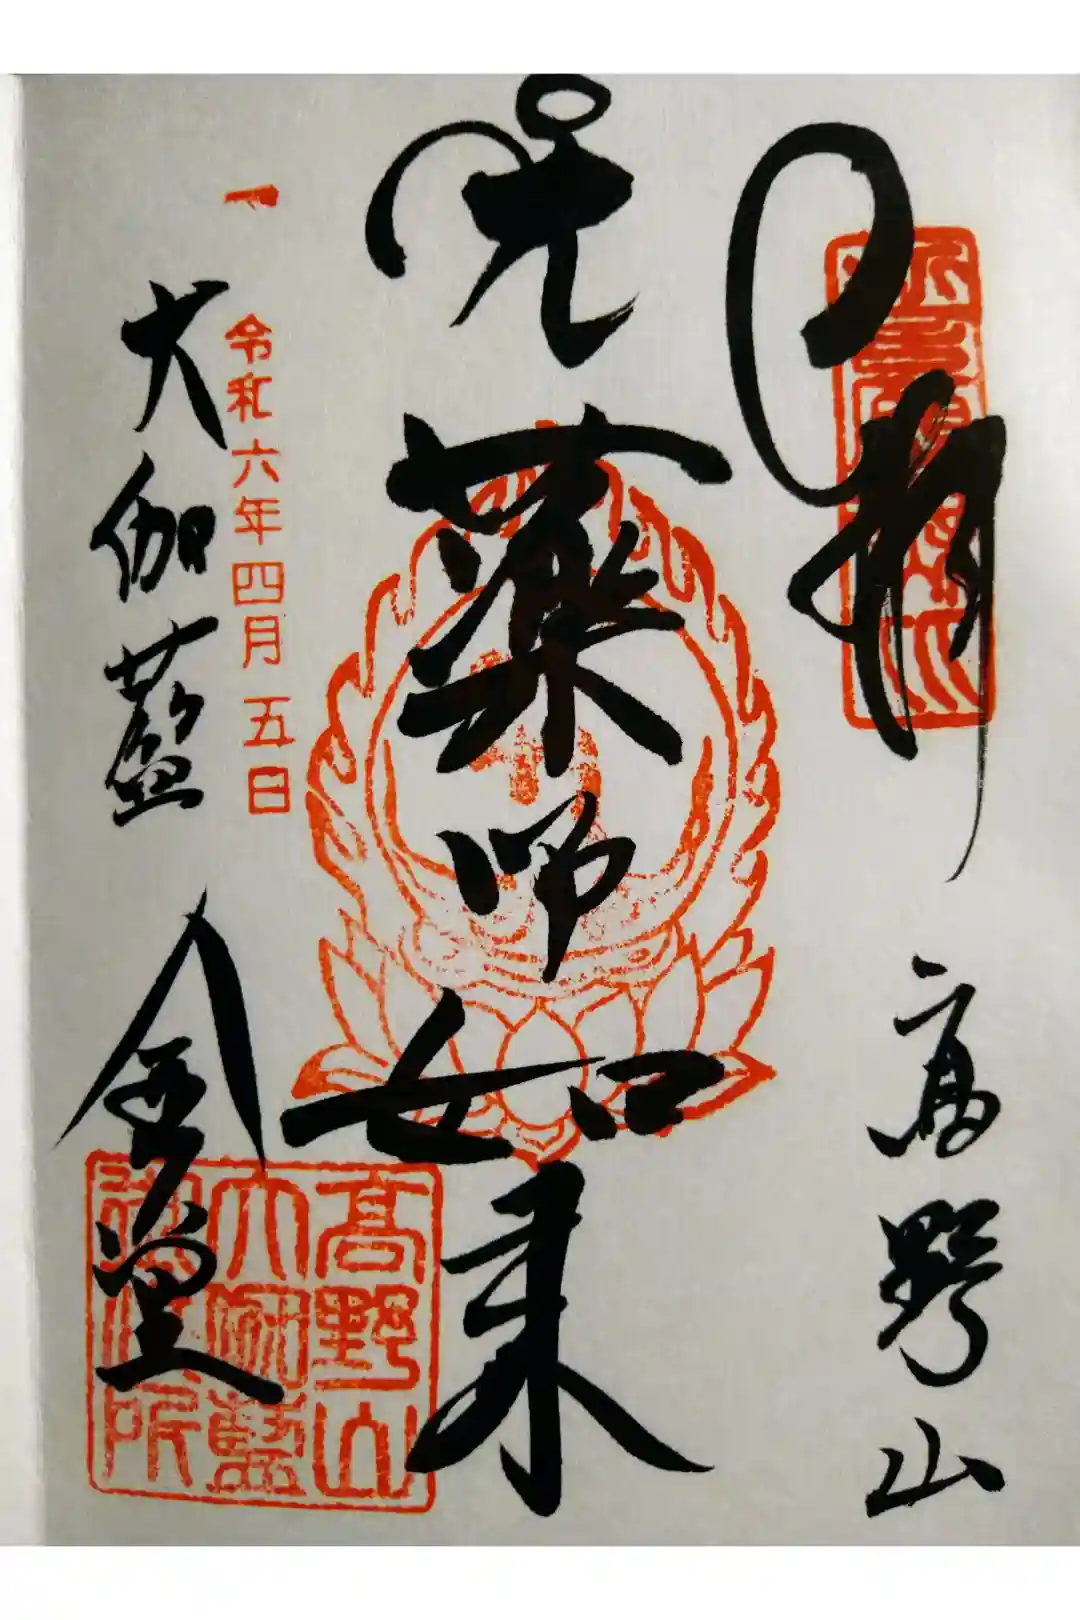 奉拝
高野山
薬師如来
令和六年四月五日
大伽藍
金堂
高野山
大伽藍